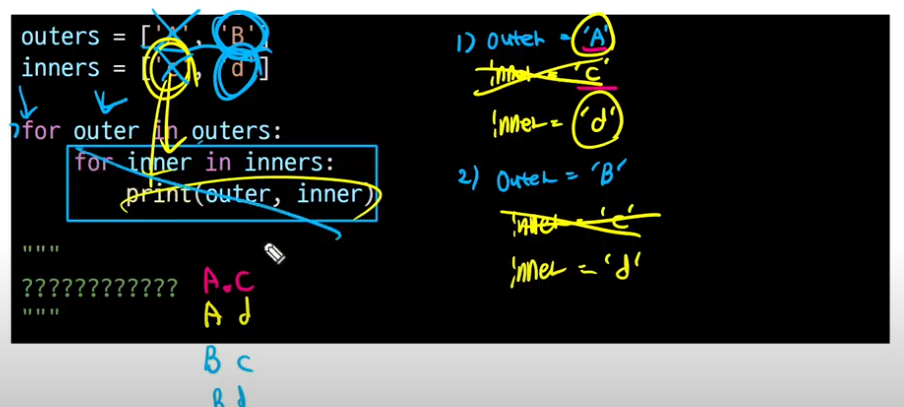 outers = ['A', 'B']
inners = ['c', 'd']
for outer in outers:
for inner in inners:
print(outer, inner)
"""
????????????
"""
A c
A d
B c
B d
1) outer = 'A'
inner = 'c'
inner = 'd'
2) outer = 'B'
inner = 'c'
inner = 'd'